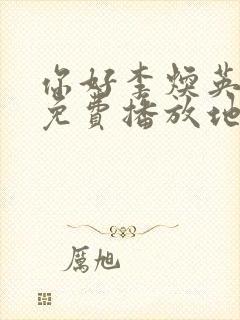 你好李煥英
免費播放地
厲旭